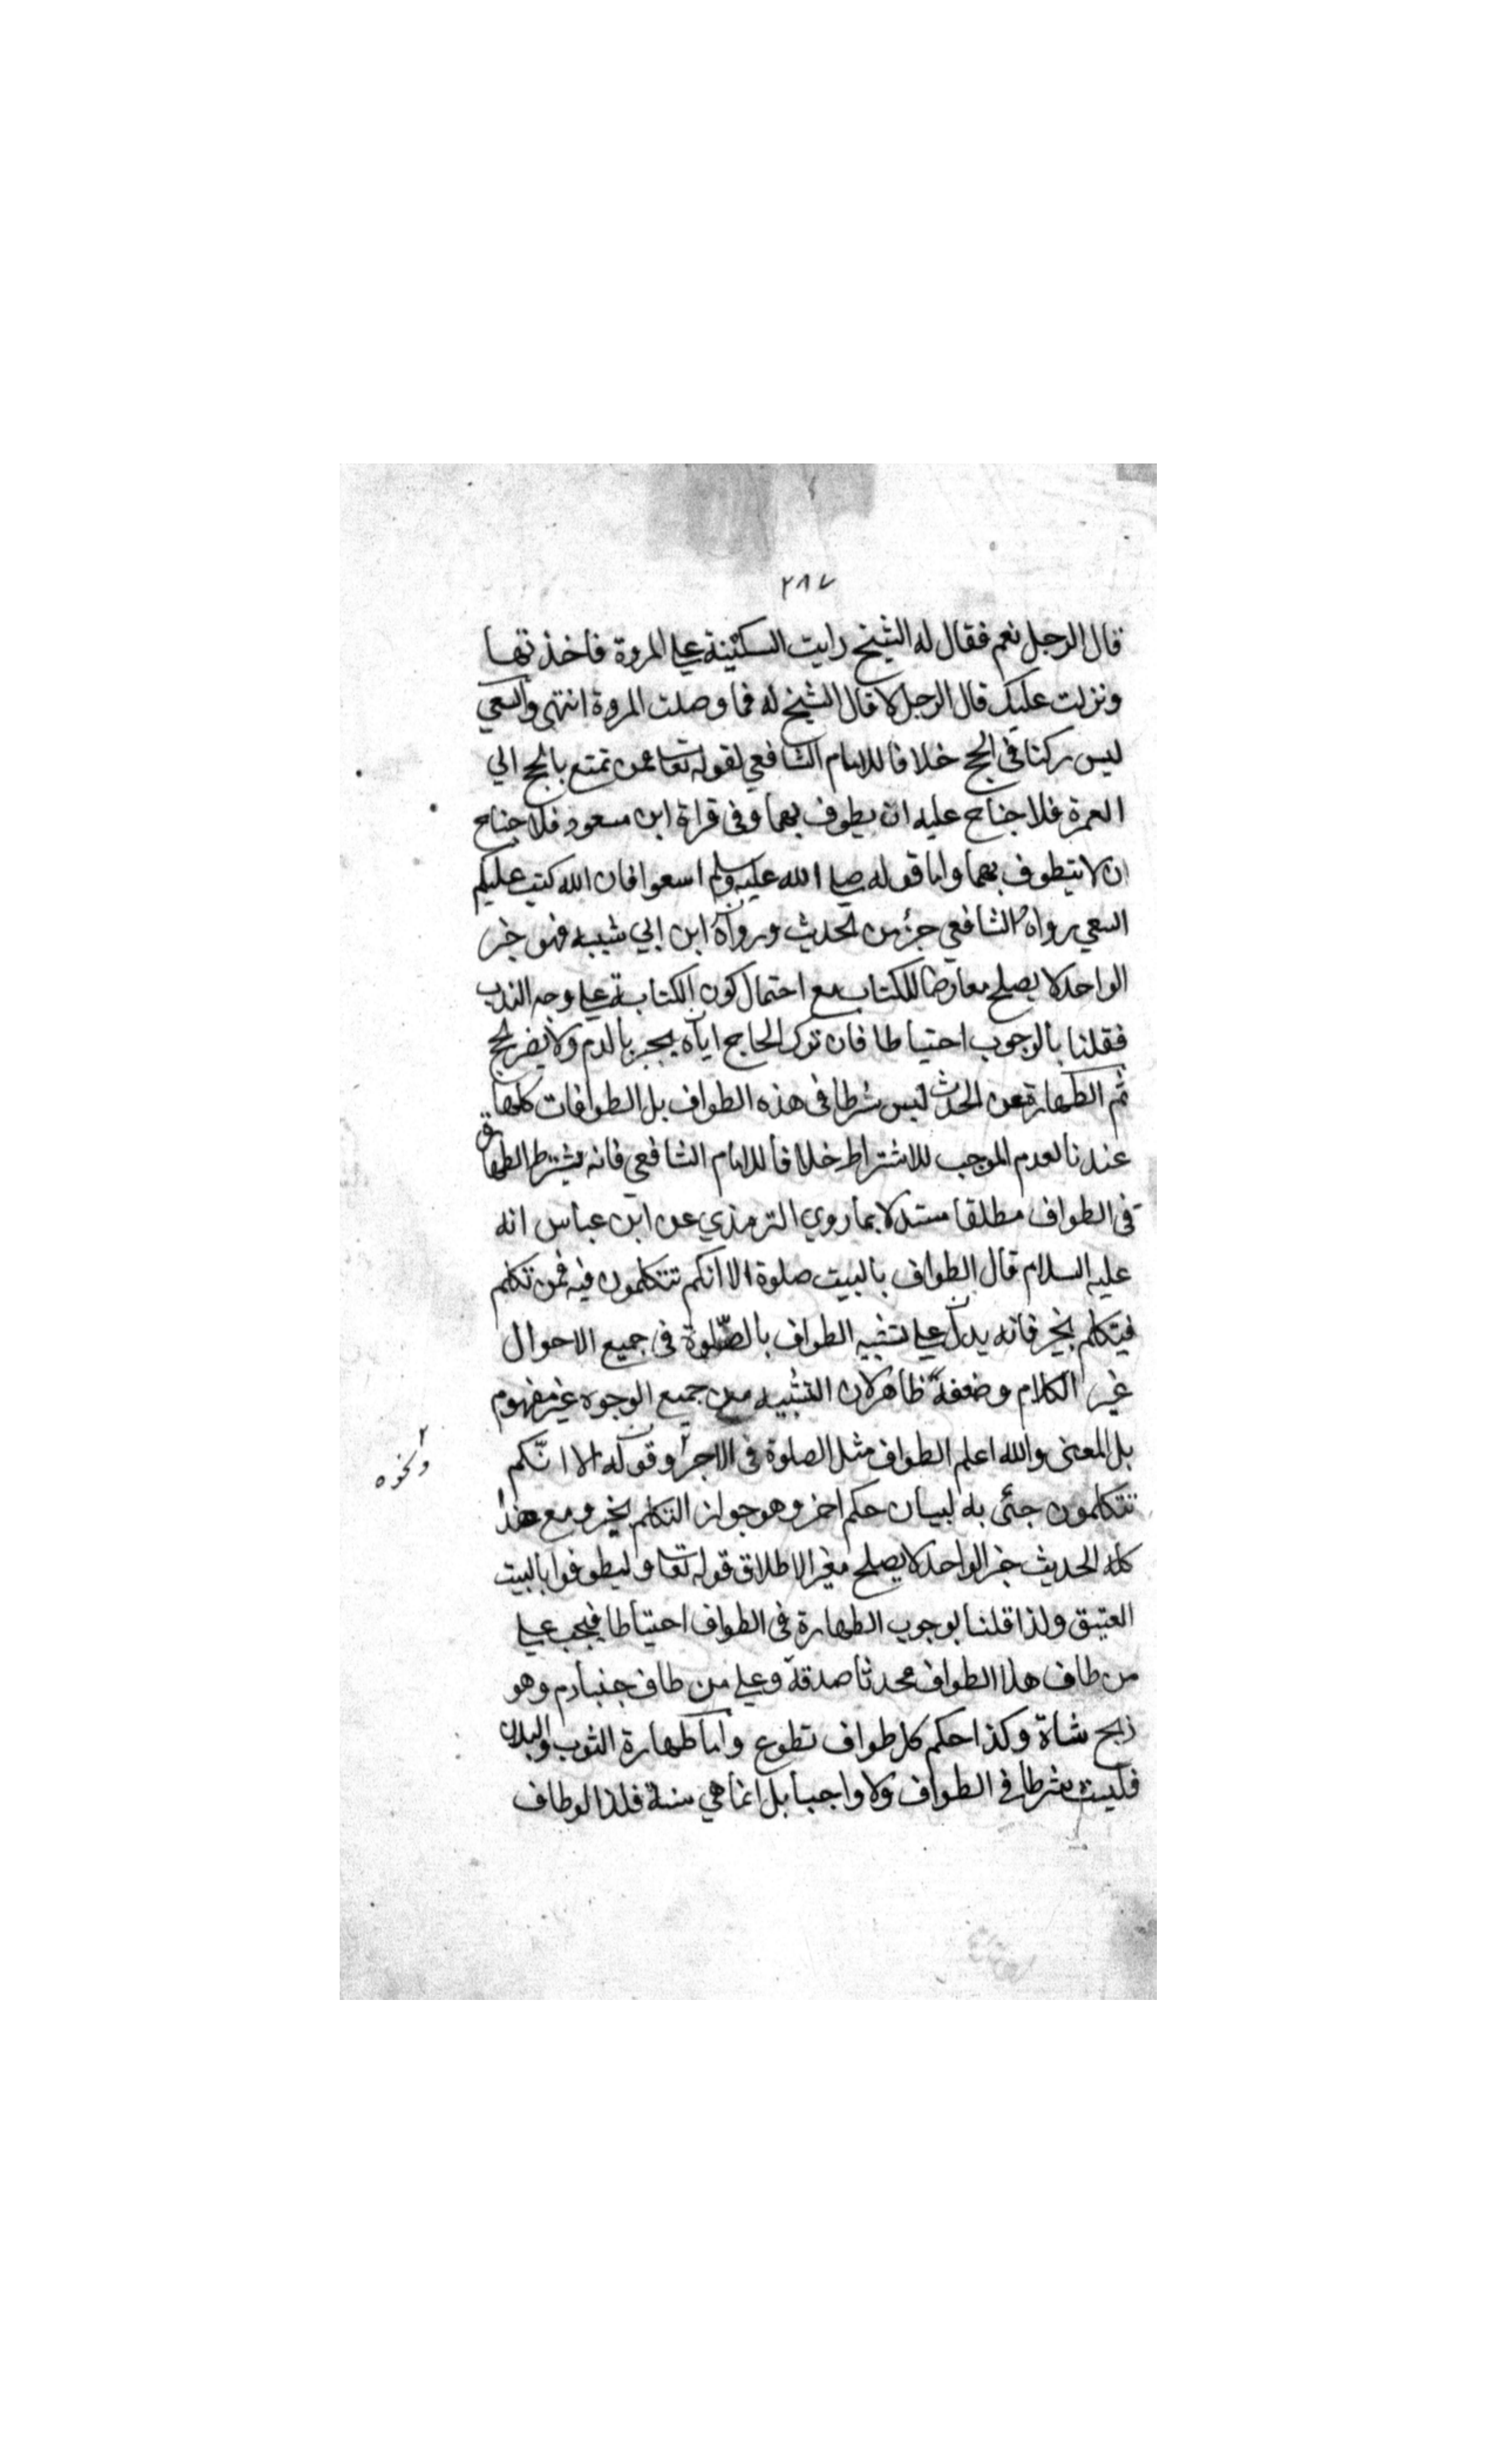 ٢٨٧
قال الرجل نعم فقال له الشيخ رايت السكينة علي المروة فاخذتها
ونزلت عليك قال الرجل لا قال الشيخ له فما وصلت المروة انتهى والسعي
ليس ركنا في الحج خلافا للامام الشافعي لقوله تعا فمن تمتع بالحج الي
العمرة فلا جناح عليه ان يطوف بهما وفي قراة ابن مسعود فلا جناح
ان لا يتطوف بهما واما قوله صلي الله عليه وسلم اسعوا فان الله كتب عليكم
السعي رواه الشافعي جزء من الحديث ورواه ابن ابي شيبه فهو خبر
الواحد لا يصلح معارضا للكتاب مع احتمال كون الكتابة علي وجه الندب
فقلنا بالوجوب احتياطا فان ترك الحاج اياه يجبر بالدم ولا يضر الحج
ثم الطهارة عن الحدث ليس شرطا في هذه الطواف بل الطوافات كلها
عندنا لعدم الموجب للاشتراط خلافا للامام الشافعي فانه يشترط الطهارة
في الطواف مطلقا مستدلا بما روي الترمذي عن ابن عباس انه
عليه السلام قال الطواف بالبيت صلوة الا انكم تتكلمون فيه فمن تكلم
فيتكلم بخير فانه يدل علي تشبيه الطواف بالصّلوة في جميع الاحوال
غير الكلام وضعفه ظاهر لان التشبيه من جميع الوجوه غير مفهوم
بل المعنى والله اعلم الطواف مثل الصلوة في الاجر وقوله الا انّكم
ونحوه
تتكلمون جئ به لبيان حكم اخر وهو جواز التكلم بخير ومع هذا
كله الحديث خبر الواحد لا يصلح مغير الاطلاق قوله تعا وليطوفوا بالبيت
العتيق ولذا قلنا بوجوب الطهارة في الطواف احتياطا فيجب علي
من طاف هذا الطواف محدثا صدقة وعلي من طاف جنبا دم وهو
ذبح شاة وكذا حكم كل طواف تطوع واما طهارة الثوب والبدن
فليست بشرط في الطواف ولا واجبا بل انما هي سنة فلذا لو طاف